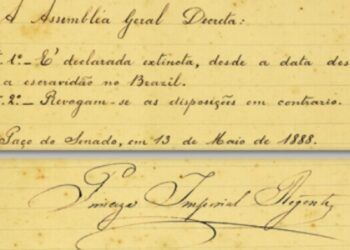 A Assembléa Geral Decreta:
1º_ É declarada extincta, desde a data des
a escravidão no Brazil.
2º_ Revogam-se as disposições em contrario.
Paço do Senado, em 13 de Maio de 1888.
Princeza Imperial Regente